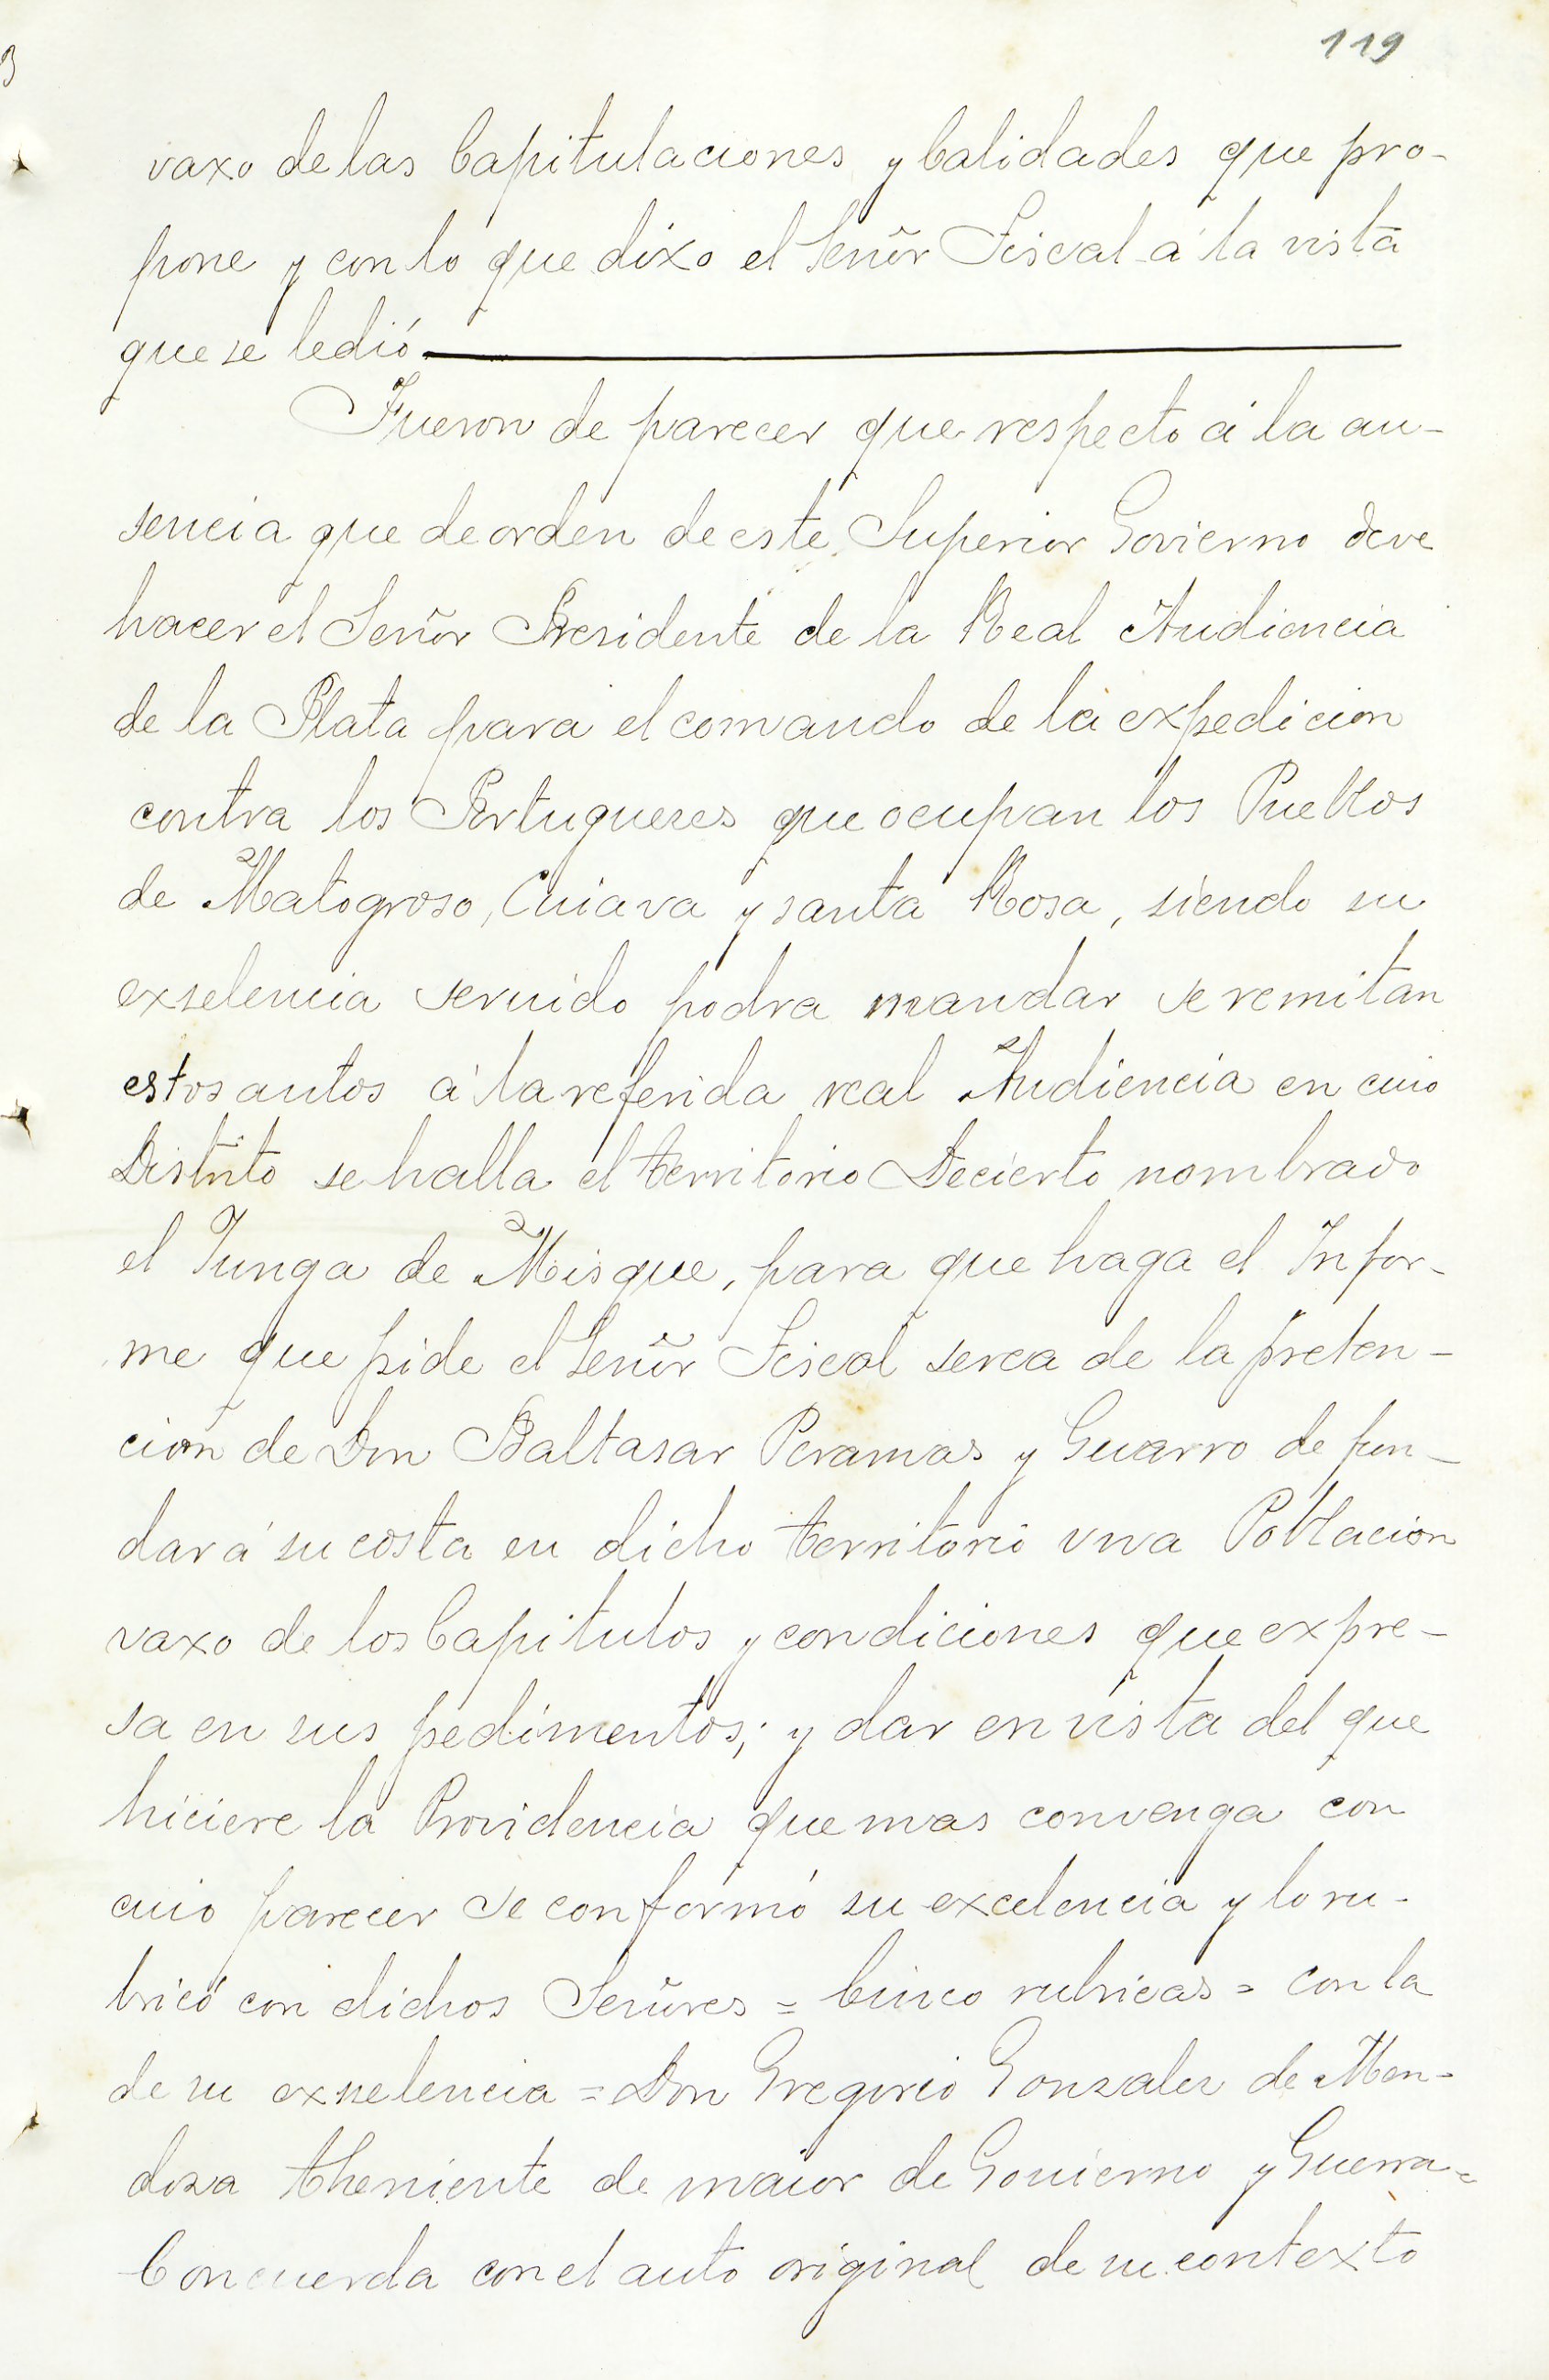 119
vaxo de las Capitulaciones y Calidades que pro-
pone y con lo que dixo el Señor Fiscal á la vista
que se le dió
Fueron de parecer que respecto á la au-
sencia que de orden de este Superior Govierno deve
hacer el Señor Presidente de la Real Audiencia
de la Plata para el comando de la expedicion
contra los Portugueses que ocupan los Pueblos
de Matogroso, Cuiava y santa Rosa, siendo su
exselencia servido podra mandar se remitan
estos autos á la referida real Audiencia en cuio
Distrito se halla el territorio Decierto nombrado
el Yunga de Misque, para que haga el Infor-
me que pide el Señor Fiscal serca de la preten-
cion de Don Baltasar Peramas y Guarro de fun-
dar á su costa en dicho territorio una Poblacion
vaxo de los Capitulos y condiciones que expre-
sa en sus pedimentos; y dar en vista del que
hiciere la Providencia que mas convenga con
cuio parecer se conformó su excelencia y lo ru-
bricó con dichos Señores = Cinco rubricas = con la
de su exselencia = Don Gregorio Gonzalez de Men-
dosa theniente de maior de Govierno y Guerra =
Concuerda con el auto original de su contexto